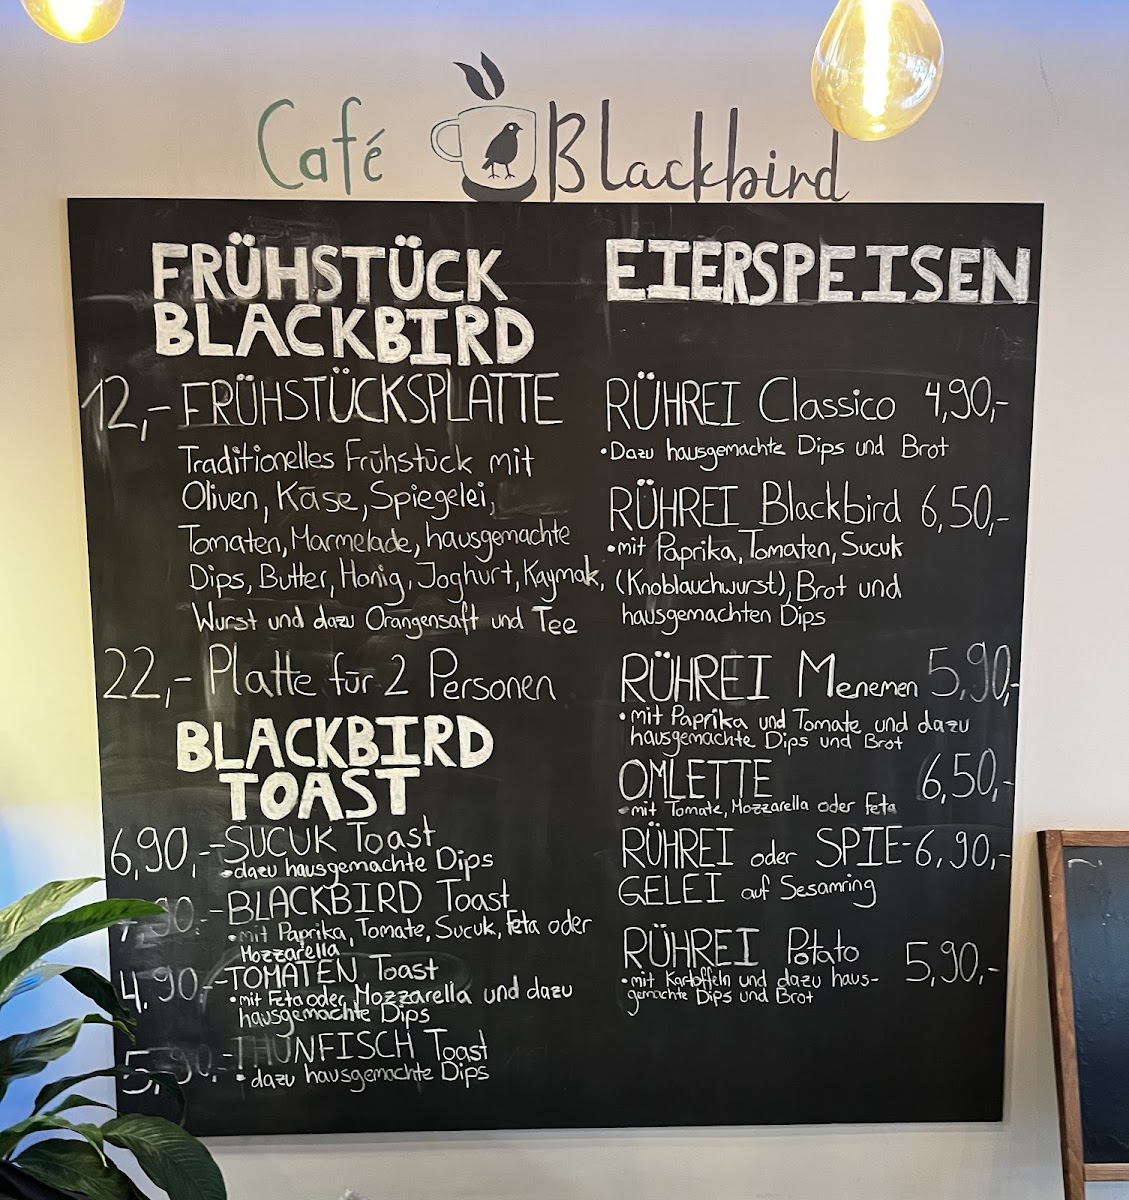 Café Blackbird
FRÜHSTÜCK
BLACKBIRD
12,- FRÜHSTÜCKSPLATTE
Traditionelles Frühstück mit
Oliven, Käse, Spiegelei,
Tomaten, Marmelade, hausgemachte
Dips, Butter, Honig, Joghurt, Kaymak,
Wurst und dazu Orangensaft und Tee
22,- Platte für 2 Personen
BLACKBIRD
TOAST
6,90,- -SUCUK Toast
•dazu hausgemachte Dips
7,90,- -BLACKBIRD Toast
•mit Paprika, Tomate, Sucuk, Feta oder
Mozzarella
4,90,- -TOMATEN Toast
•mit Feta oder Mozzarella und dazu
hausgemachte Dips
5,90,- -THUNFISCH Toast
• dazu hausgemachte Dips
EIERSPEISEN
RÜHREI Classico 4,90,-
•Dazu hausgemachte Dips und Brot
RÜHREI Blackbird 6,50,-
•mit Paprika, Tomaten, Sucuk
(Knoblauchwurst), Brot und
hausgemachten Dips
RÜHREI Menemen 5,90,-
•mit Paprika und Tomate und dazu
hausgemachte Dips und Brot
OMLETTE 6,50,-
•mit Tomate, Mozzarella oder Feta
RÜHREI oder SPIE- 6,90,-
GELEI auf Sesamring
RÜHREI Potato 5,90,-
•mit Kartoffeln und dazu haus-
gemachte Dips und Brot